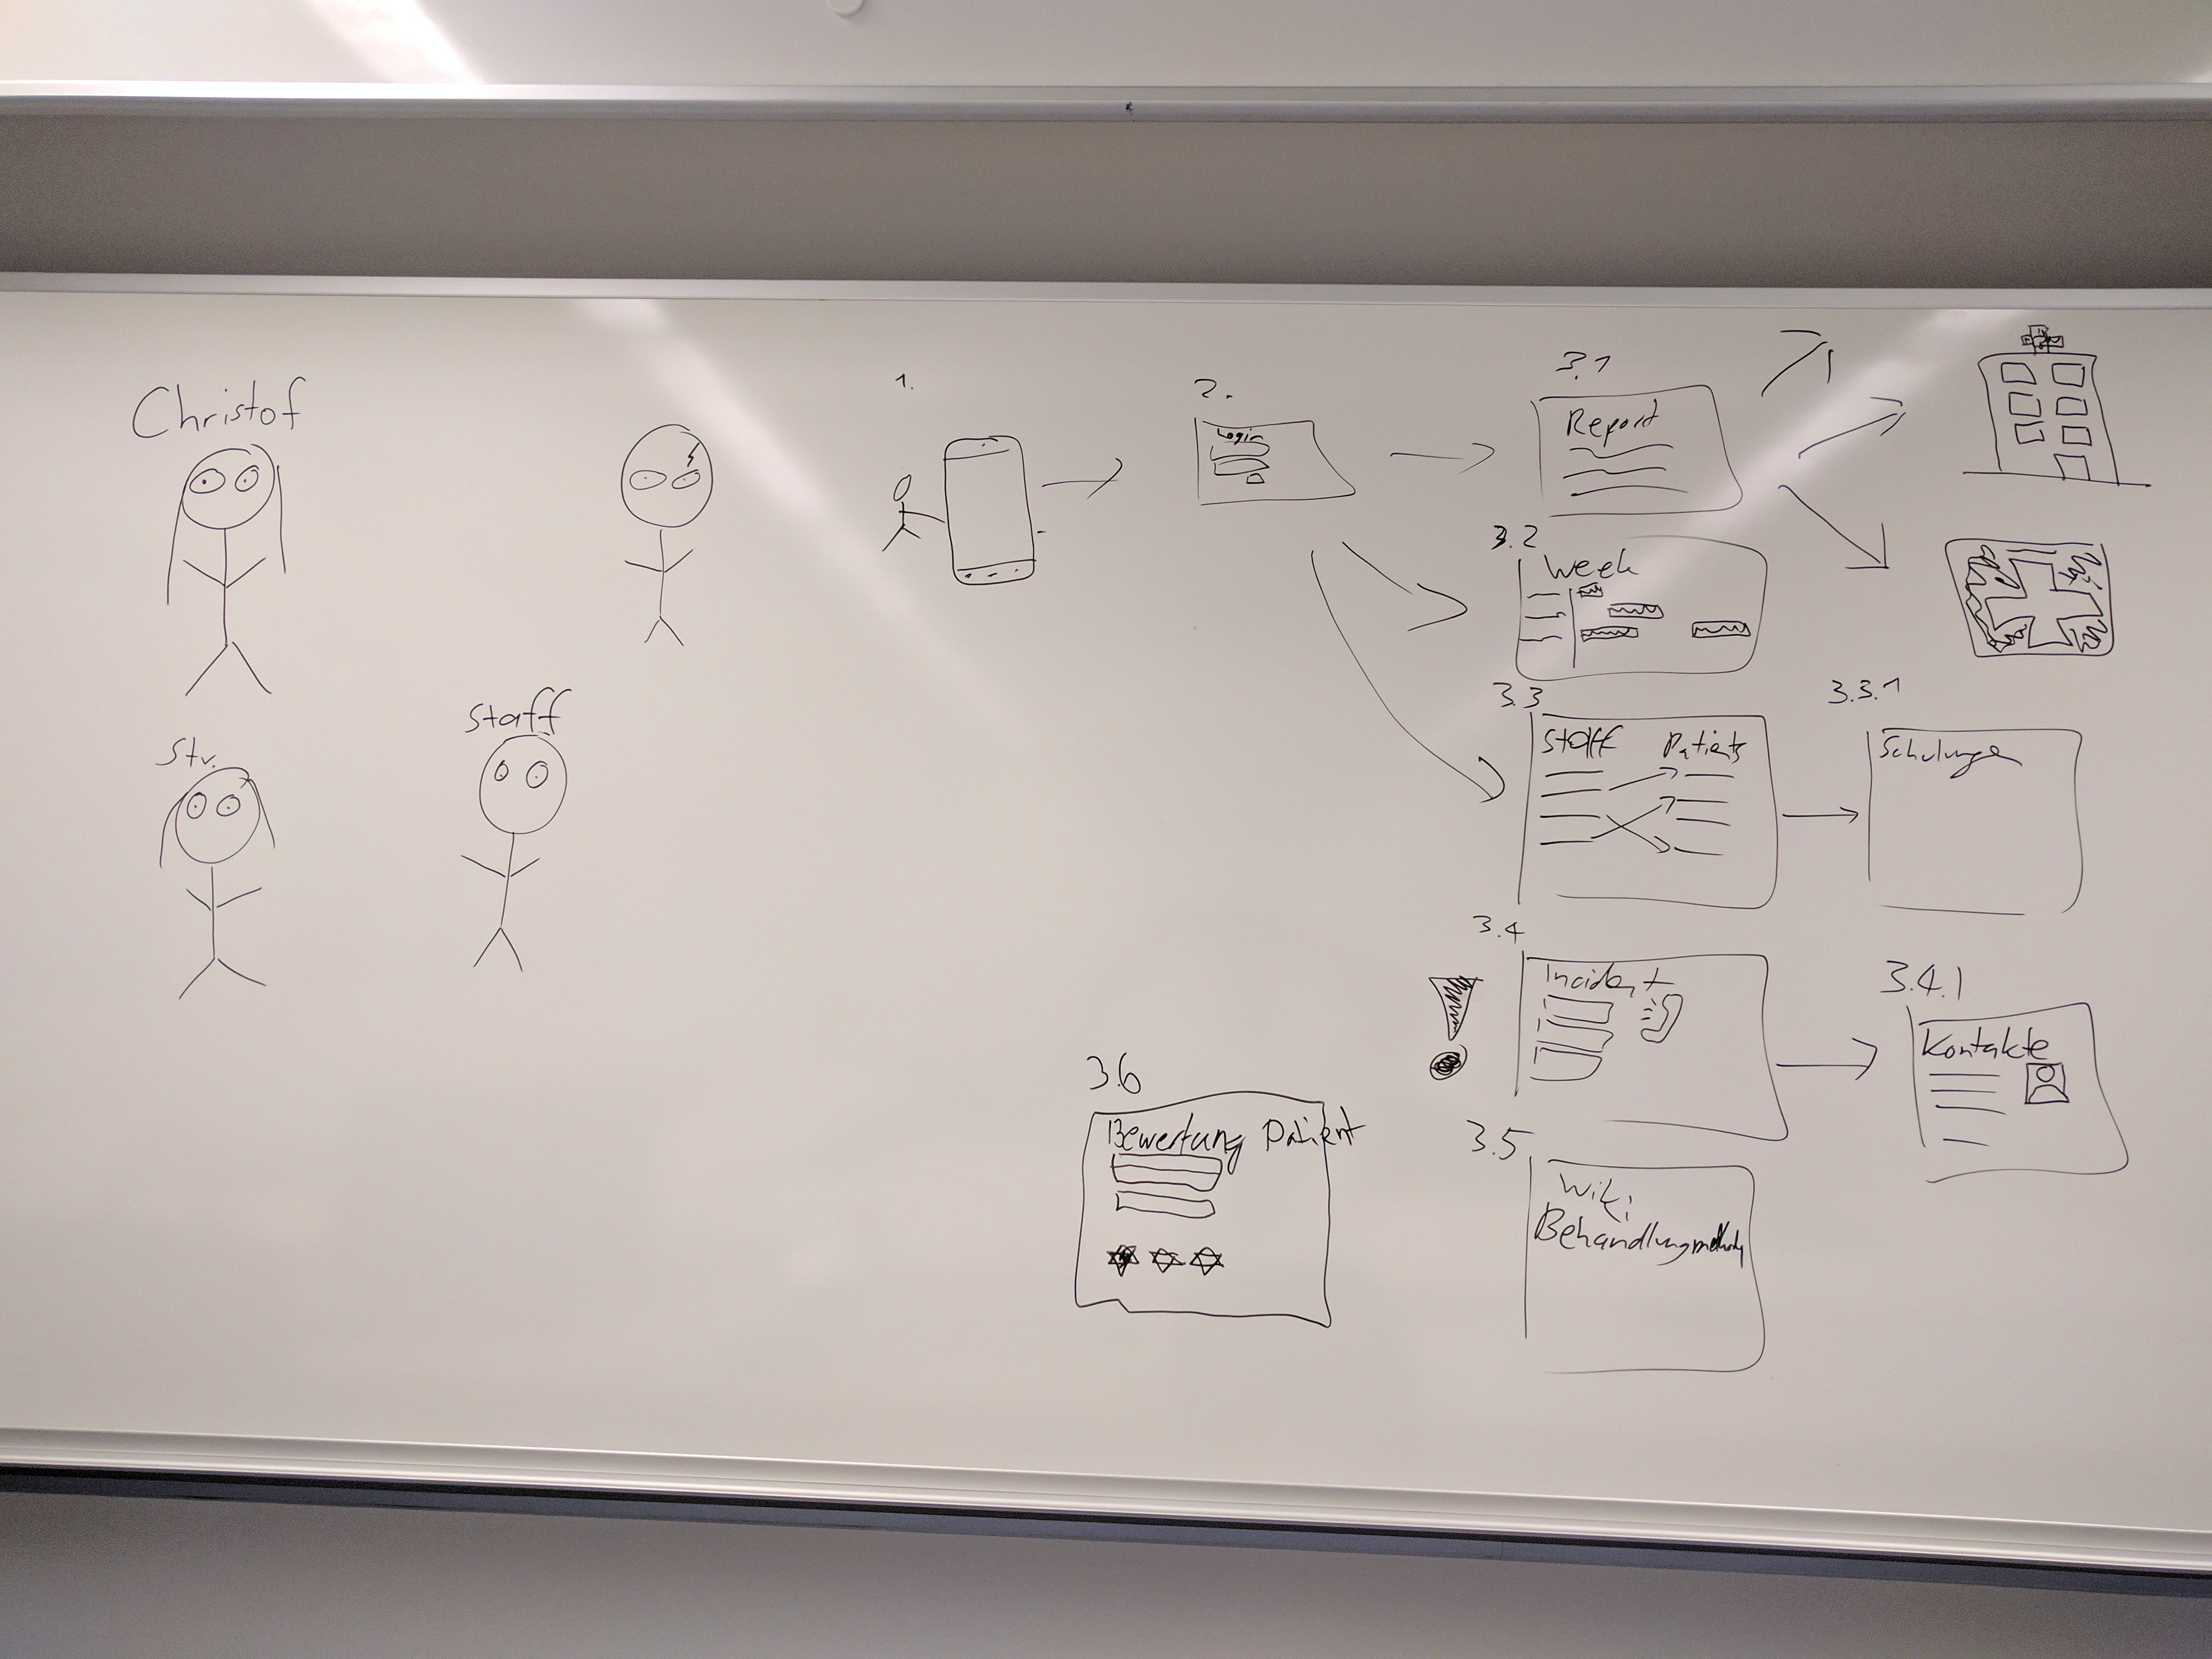 Christof
Stv.
Staff
1.
2.
Login
3.1
Report
3.2
Week
3.3
Staff Patients
3.3.1
Schulungen
3.4
Incident
3.4.1
Kontakte
3.5
Wiki
3.6
Bewertung Patient